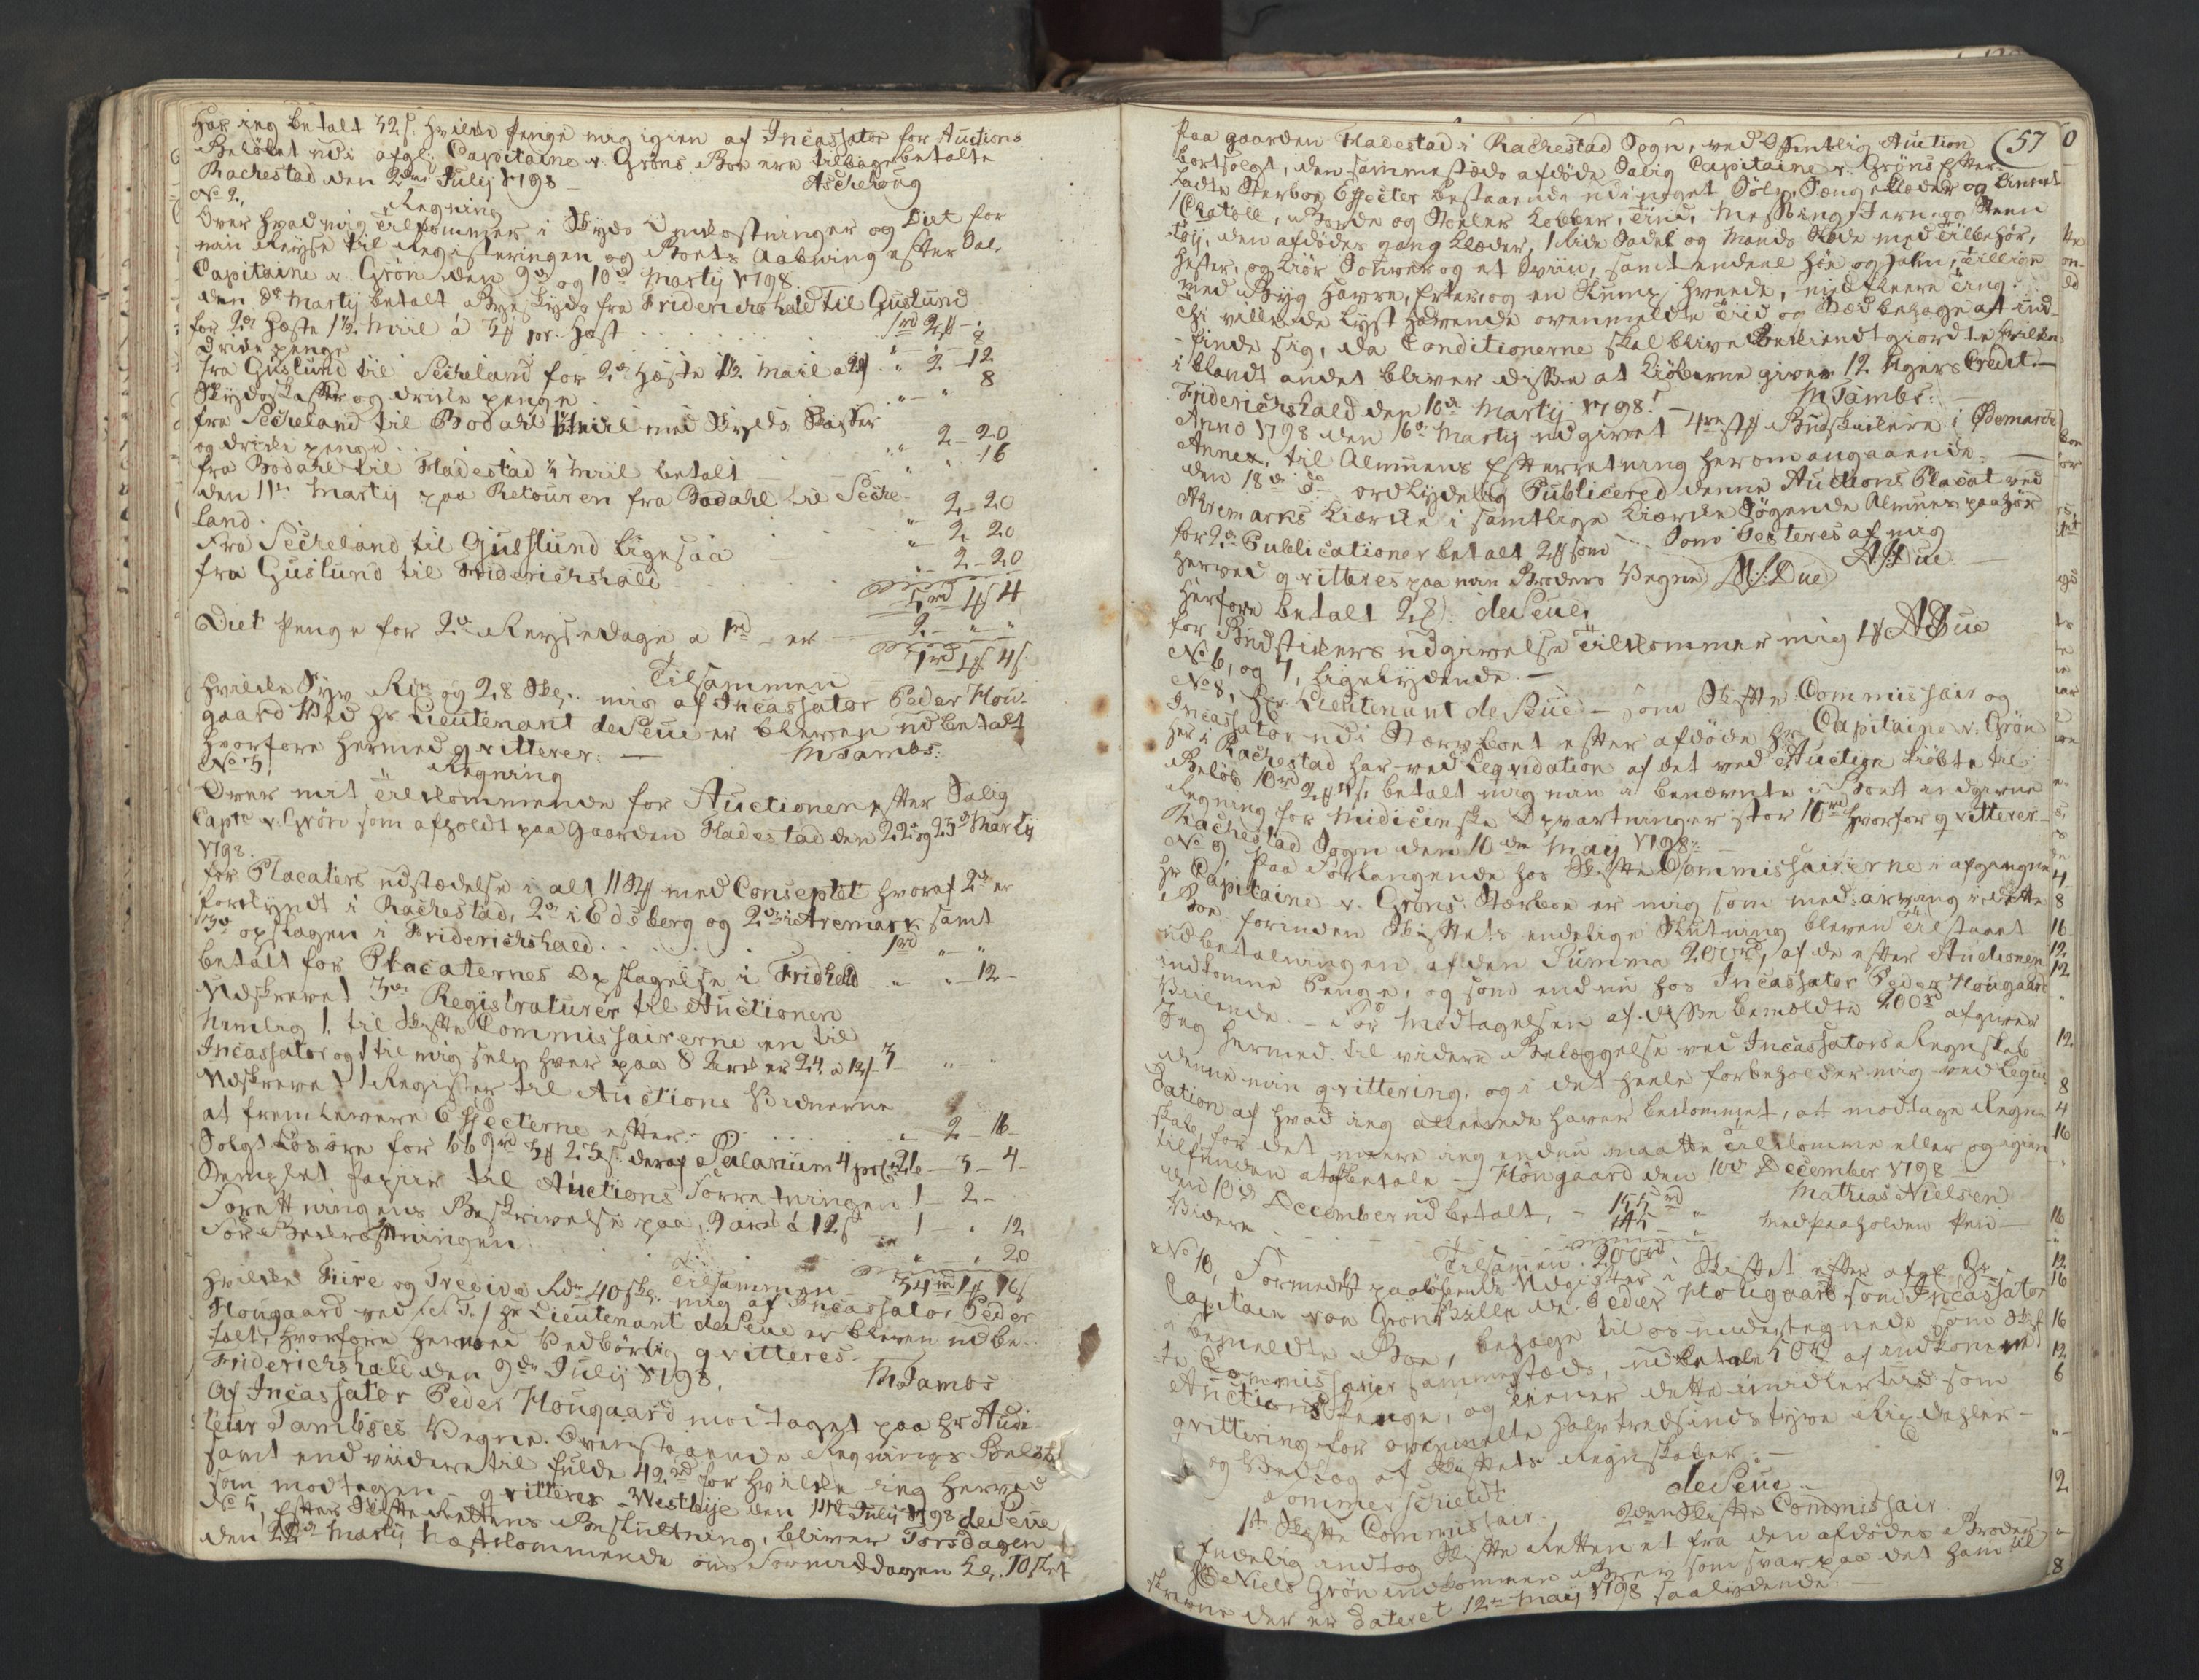 har ieg betalt 32 s: hvilke penge mig igien af Incassator for Auctions
Beløbet udi afgl: Capitaine v. Grøns Boe ere tilbagebetalte
Rachestad den 2den Julij 1798 — Aschehoug
No 2, Regning
Over hvad mig tilkommer i Skyds Omkostninger og Diet for
min Reyse til Registeringen og Boets Aabning efter Sal.
Capitaine v. Grøn den 9de og 10de Martij 1798.
den 8de Martij betalt Bye Skyds fra Friderichshald til Guslund
for 2de Hæste 1½ Miil á 3 # pr. Hæst 1rd 2 # — "
Drikepenge " " 8
fra Guslund til Sekeland for 2de Hæste 1½ Miil a 28 s " 2 — 12
Skydsskaffer og drikepenge " — " 8
fra Sekeland til Bodahl Miil med Skyds Skaffer
og drikepenge " 2 — 20
fra Bodahl til Fladestad ¼ Miil betalt " " 16
den 11te Martij paa Retouren fra Bodahl til Seke-
land " 2 — 20
Fra Sekeland til Gusslund ligesaa " 2 20
fra Guslund til Friderichshald " 2 — 20
5rd 1 # 4
Diet Penge for 2de Reysedage a 1rd — er — 2 — " "
Tilsammen 7rd 1 # 4 s
Hvilke Syv Rdr og 28 Skl: mig af Incassator Peder Hou-
gaard Ved Hr Lieutenant deSeue er bleven udbetalt
hvorfore hermed qvitterer. — M Tambs.
No 3, Regning
Over mit tilkommende for Auctionen efter Salig
Capt: v. Grøn som afholdt paa Gaarden Fladestad den 22de og 23de Martij
1798.
for Placaters udstædelse i alt 11 St med Conceptet hvoraf 2de er
forkyndt i Rachestad, 2de i Edsberg og 2de i Aremark samt
3de opslagen i Friderichshald 1rd " — "
betalt for Placaternes Opslagelse i Fridhald " " — 12 —
Udskrevet 3de Registraturer til Auctionen
Nemlig 1. til Skifte Commissairerne en til
Incassator og 1 til mig selv hver paa 8 Ark er 24 a 12 s — 3 — " — "
Udskrevet 1 Register til Auctions Vidnerne
at fremlevere Effecterne efter " 2 — 16 —
Solgt Løsøre for 669rd 3 # 23 s: deraf Salarium 4 prCto 26 — 3 — 4 —
Stemplet papiir til Auctions Forretningen 1 — 2 —
Forrettningens Beskrivelse paa 9 ark á 12 s 1 — " 12
For Bekosttningen " " 20
Tilsammen 34rd 1 # 16 s
Hvilke Fiire og Tredive Rdr 40 skl: mig af Incassator Peder
Hougaard ved /: S. T. / Hr Lieutenant deSeue er bleven udbe-
talt, hvorfore hermed Vedbørlig qvitteres —
Friderichshald den 9de Julij 1798. M. Tambs
Af Incassator Peder Hougaard modtaget paa Hr Audi
teur Tambses Vegne. Ovenstaaende Regnings Beløb
samt end viidere til fulde 42rd for hvilke ieg herved
som modtagen — qvitterer — Westbye den 14de Julij 1798 deSeue
No 5, Efter Skifte Rettens Beslutning, bliver Torsdagen
den 22de Martij næstkommende om Formiddagen Kl. 10 slet
(57
Paa gaarden Fladestad i Rachestad Sogn, ved Offentlig Auction
bortsolgt, den sammestæds afdøde Salig Capitaine v. Grøns Efter-
ladte Sterboe Effecter bestaaende udi noget Sølv, Sengeklæder og Linnet
1 Chatoll, Borde og Stoeler Kobber, Tind, Messing, Jern og Steen
tøij, den afdødes gang Klæder, 1 Ride Sadel og Mands Slæde med Tilbehør,
Hester, og Kiør Souver og et Sviin, samt endeel Høe og halm, tillige
med Byg Havre, Erter, og en Slump Hvede, med fleere Ting.
Thi vilde de Lyst havende ovenmeldte Tiid og Sted behage at ind-
finde sig, da Conditionerne skal blive Bekiendtgiordte hvilke
i blandt andet bliver disse at Kiøberne giver 12 Ugers Credit —
Friderichshald den 10de Martij 1798. — M Tambs.
Anno 1798 den 16de Martij udgivet 4re st Budstikere i Ødemarck
Annex, til Almuens Efterretning herom angaaende. —
den 18de do ordlydelig Publicered denne Auctions Placat ved
Aremarks Kiærke i samtlige Kiærke søgende Almues paahør
Som Testeres af mig
for 2de Publicationer betalt 2 # som A: Due
herved qvitteres paa min Broders Vegne A: Due
herfore betalt 28 s: deSeue,
for Budstikers udgivelse tilkommer mig 1 # A Due
No 6, og 7, ligelydende. —
No 8, Hr. Lieutenant deSeue — som Skifte Commissair og
Incassator udi Stervboet efter afdøde Hr Capitaine v. Grøn
her i Rachestad har ved Leqvidation af det ved Auction kiøbte til
Beløb 10rd 2 # betalt mig min a benævnte Boet indgivne
Regning for Midicinske Opvartninger stor 10rd hvorfor qvitterer —
Rachestad Sogn den 10de Maij 1798.
No 9, Paa Forlangende hos Skifte Commissairerne i afgangne
Hr Capitaine v. Grøns Sterboe er mig som med:arving i dette
Boe forinden Skiftets endelige Slutning bleven tilstaaet
udbetalningen af den Summa 200rd, af de efter Auctionen
indkomne Penge, og som endnu hos Incassator Peder Hougaard
Beroende. — For Modtagelsen af disse bemældte 200rd afgiver
Jeg hermed til videre Belæggelse ved Incassators Regnskab
denne min qvittering, og i det heele forbeholder mig ved Liqui-
dation af hvad ieg allereede haver bekommet, at modtage Regn-
skab for det meere ieg endnu maatte tilkomme eller og igien
tilfunden at afbetale — Hougaard den 10de December 1798
Mathias Nielsen
den 10de December udbetalt, — 155rd " Med paaholden Pen —
Videre 45 "
Tilsamen 200rd
No 10, Formedelst paaløbende Udgifter i Skiftet efter afgl. Hr
Capitain von Grøn Ville de Peder Hougaard som Incassator
a bemeldte Boe, behage til os undertegnede som Skif-
te Commissairer sammestæds, udbetale 50rd af indkomne
Auctions Penge, og tiener dette imidlertiid som
qvittering for ommelte halvtredsindstyve Rixdahler —
og Vedlæg af Skiftets Regnskaber: —
Sommerschieldt deSeue
1ste Skifte Commissair. 2den Skifte Commissair.
Endelig indtog Skifte Retten et fra den afdødes Broder
Hr Niels Grøn indkommen Brev som svar paa det ham til
skrevne der er Dateret 12te Maij 1798 saalydende: —